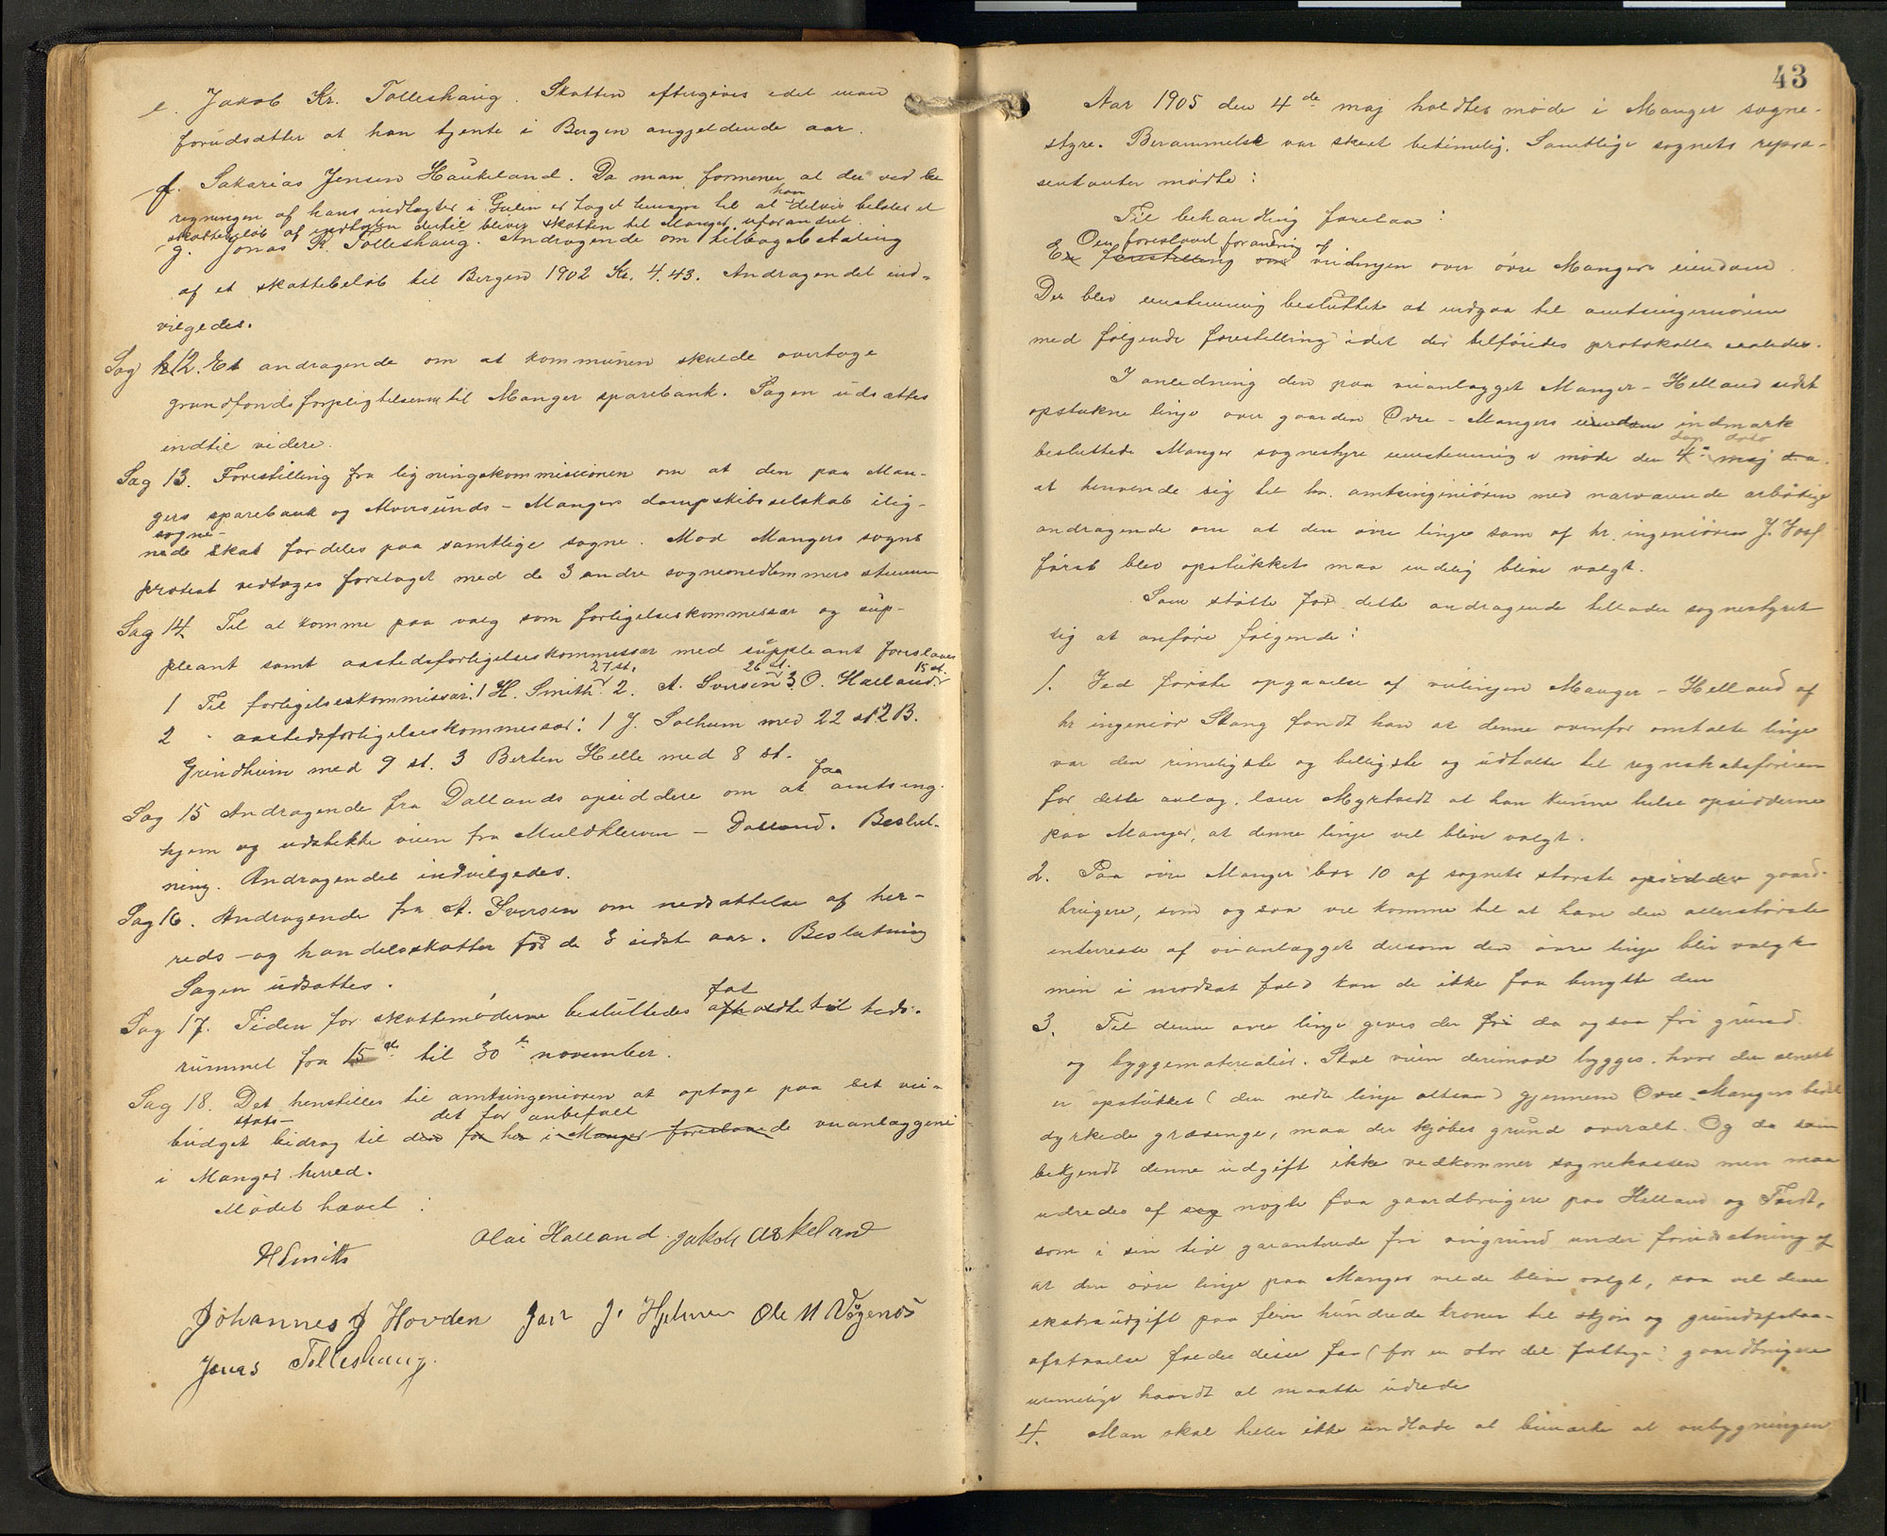 e. Jakob Kr. Tolleshaug. Skatten eftergives idet man
forudsætter at han tjente i Bergen angjeldende aar.
f. Sakarias Jensen Haukeland. Da man formener at der ved be
regningen af hans indtægter i Gulen er taget hensyn til at han delvis betaler et
skattebeløb af indtægten dertil bliver skatten til Manger uforandret.
g. Jonas K. Tolleshaug. Andragende om tilbagebetaling
af et skattebeløb til Bergen 1902 Kr. 4.43. Andragendet ind-
vilgedes.
Sag 12. Et andragende om at kommunen skulde overtage
grundfondsforpligtelserne til Manger sparebank. Sagen udsættes
indtil videre.
Sag 13. Forestilling fra ligningskommissionen om at den paa Man-
gers sparebank og Alversunds - Manger dampskibsselskab ilig-
nede sogne- skat fordeles paa samtlige sogne. Mod Mangers sogns
protest vedtages forslaget med de 3 andre sognemedlemmers stemmer
Sag 14. Til at komme paa valg som forligelseskommissær og sup-
pleant samt aastedsforligelseskommissær med suppleant foreslaaes
1 Til forligelseskommissær: 1 H. Smith 27 st. 2. A. Iversen 26 st. 3 O. Halland 15 st.
2 " aastedsforligelseskommissær: 1 J. Solheim med 22 st 2 B.
Grindheim med 9 st. 3 Berten Helle med 8 st.
Sag 15 Andragende fra Dallands opsiddere om at faa amtsing.
hjem og udstikke veien fra Muldkleiven - Dalland. Beslut-
ning. Andragendet indvilgedes.
Sag 16. Andragende fra A. Iversen om nedsættelse af her-
reds - og handelsskatter for de 3 sidst aar. Beslutning
Sagen udsættes.
Sag 17. Tiden for skattemøderne besluttedes fat afholdte til tids-
rummet fra 15de til 30te november.
Sag 18. Det henstilles til amtsingeniøren at optage paa det vei-
budget stats- bidrag til det før anbefalt de før her i Manger foreslaaede veianlæggene
i Manger herred.
Mødet hævet:
HSmith Olai Halland Jakob Askeland
Johannes J Hovden J. Hjelmen Ole M Vågenes
Jonas Tolleshaug.
43
Aar 1905 den 4de maj holdtes møde i Manger sogne-
styre. Berammelse var skeet betimelig. Samtlige sognets repræ-
sentanter mødte:
Til behandling forelaa:
Om foreslaaet forandring af
En forestilling om veilinjen over øvre Mangers eiendom
Der blev enstemmig besluttet at indgaa til amtsingeniøren
med følgende forestilling idet der tilføiedes protokollen saaledes.
I anledning den paa veianlægget Manger - Helland sidst
opstukne linje over gaarden Øvre - Mangers eiendom indmark
besluttede Manger sognestyre enstemmig i møde den 4de maj d.a. dags dato
at henvende sig til hr. amtsingeniøren med nærværende ærbødige
andragende om at den øvre linje som af hr. ingeniøren J.
først blev opstukket maa endelig blive valgt.
Som støtte for dette andragende tillader sognestyret
sig at anføre følgende:
1. Ved første opgaaelse af veilinjen Manger - Helland af
hr ingeniør Stang fandt han at denne ovenfor omtalte linje
var den rimeligste og billigste og udtalte til regnskabsføreren
for dette anlæg, lærer Myrtvedt at han kunne hilse opsidderne
paa Manger, at denne linje vil blive valgt.
2. Paa øvre Manger bor 10 af sognets største opsiddere gaard-
brugere, som ogsaa vil komme til at have den allerstørste
interesse af veianlægget dersom den øvre linje blir valgt
men i modsat fald kan de ikke faa benytte den
3. Til denne øvre linje gives der fri da ogsaa fri grund
og byggematerialier. Skal veien derimod bygges, hvor den senest
er opstukket (den nedre linje altsaa) gjennem Øvre Mangers bedst
dyrkede græsenge, maa der kjøbes grund overalt. Og da som
bekjendt denne udgift ikke vedkommer sognekassen men maa
udredes af nogle faa gaardbrugere paa Helland og Toft,
som i sin tid garanterede fri veigrund under forudsætning af
at den øvre linje paa Manger vilde blive valgt, saa vil denne
ekstraudgift paa flere hundrede kroner til skjøn og grundafstaa-
afstaaelse falde disse faa (for en stor del fattige) gaardbrugere
urimeligt haardt at maatte udrede
4. Man skal heller ikke undlade at bemærke at ombygningen